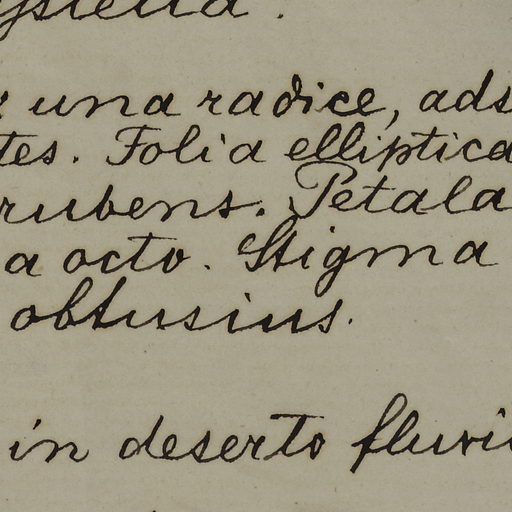 una radice, ads
tes. Folia elliptica
rubens. Petala
a octo. Stigma
obtusius.
in deserto fluvi